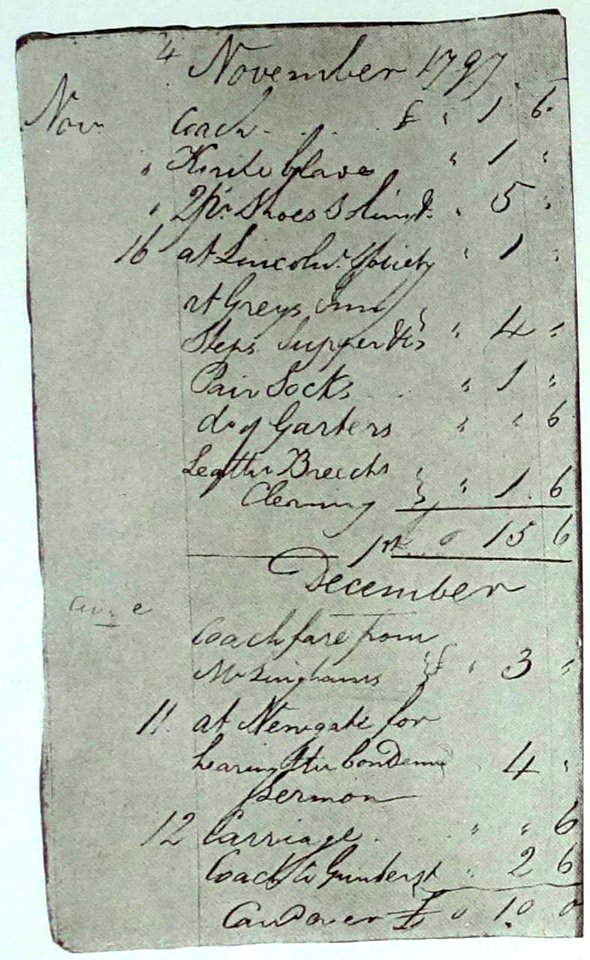 4 November 1797
Nov. Coach £ " 1 6
" Knife " 1 "
" 2 pr. Shoes " 5 "
16 at Lincoln's Society " 1 "
at Greys Inn
Steps Supper &c " 4 "
Pair Socks " 1 "
do of Garters " " 6
Leather Breechs
Clening " 1 6
0 15 6
December
Coach fare from
Mr £ " 3 "
11 at Newgate for
hearing the Condemn
Sermon 4 "
12 Carriage " " 6
Coach to " 2 6
£ 0 10 0